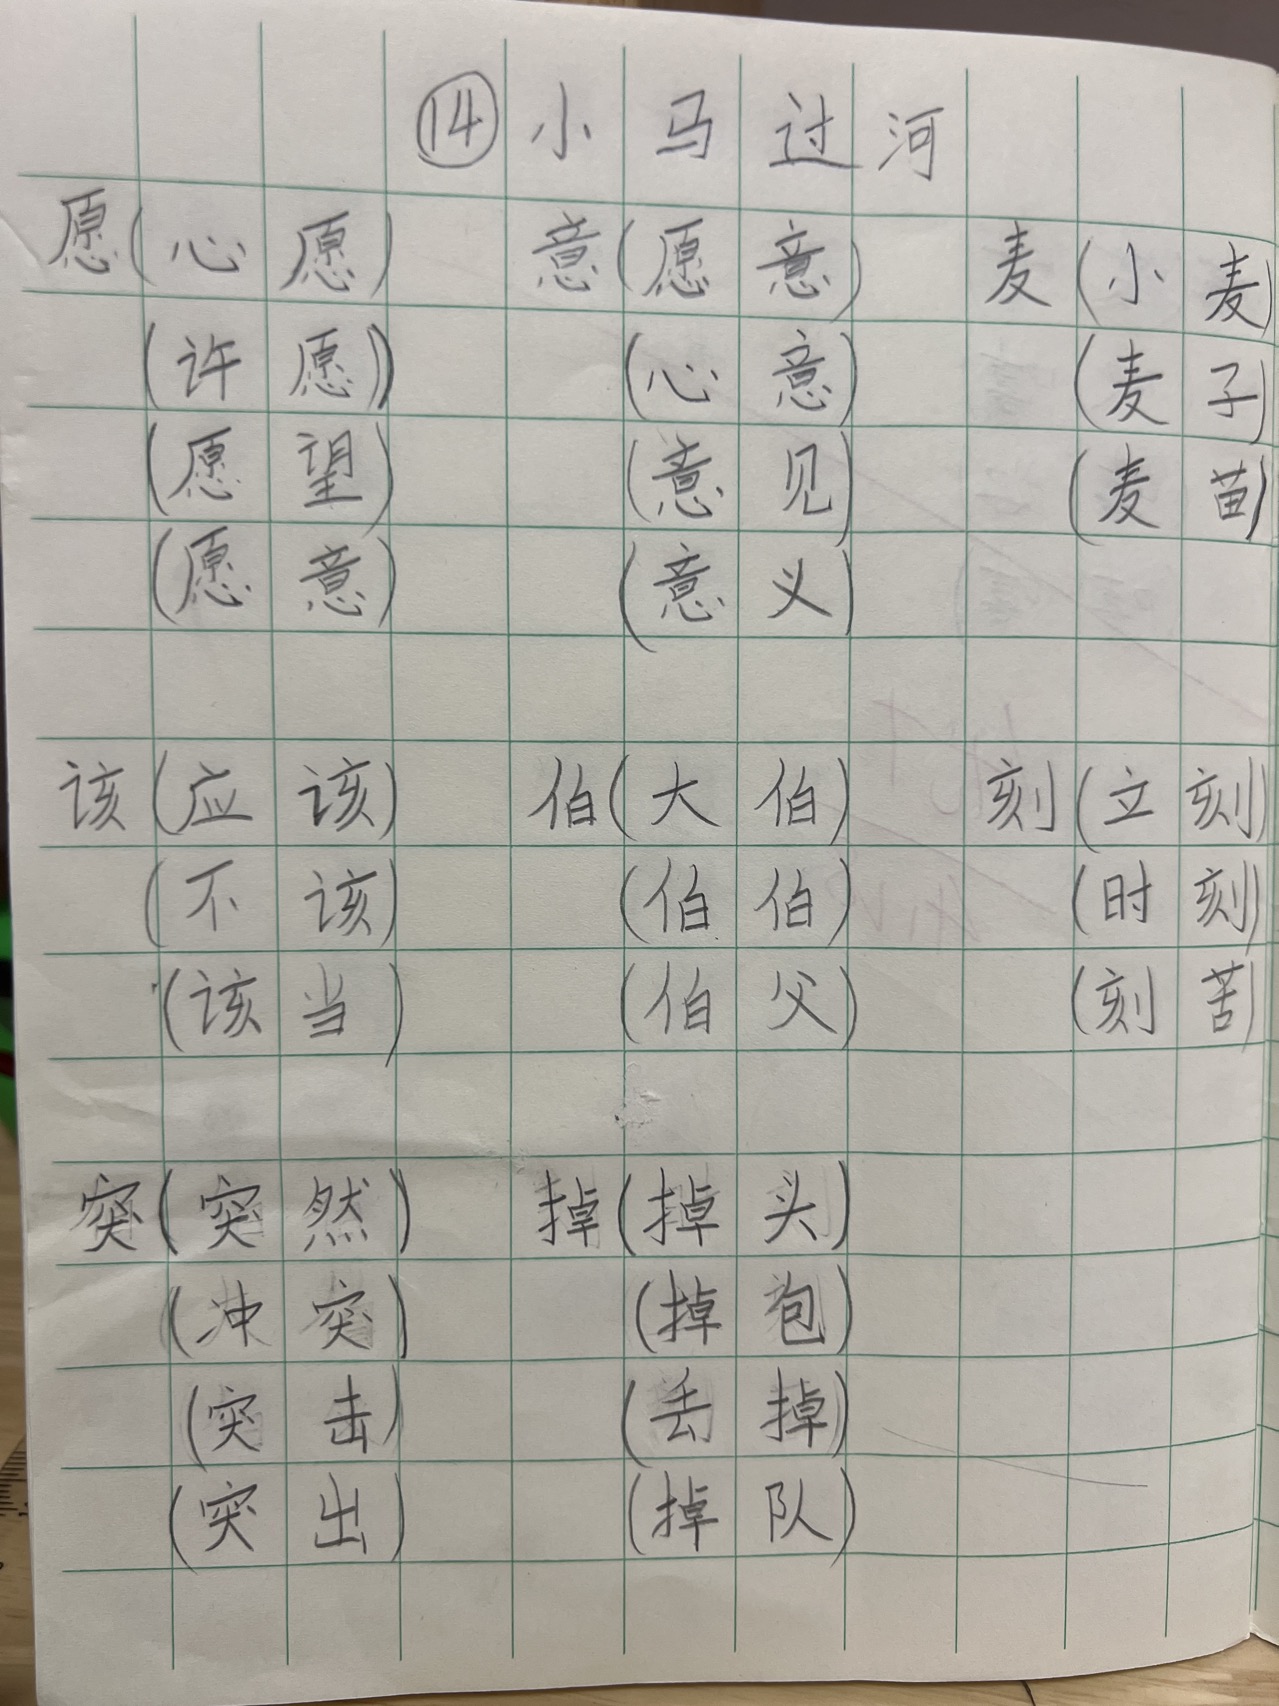 ⑭小马过河
愿(心愿) 意(愿意) 麦(小麦)
(许愿) (心意) (麦子)
(愿望) (意见) (麦苗)
(愿意) (意义)
该(应该) 伯(大伯) 刻(立刻)
(不该) (伯伯) (时刻)
(该当) (伯父) (刻苦)
突(突然) 掉(掉头)
(冲突) (掉包)
(突击) (丢掉)
(突出) (掉队)